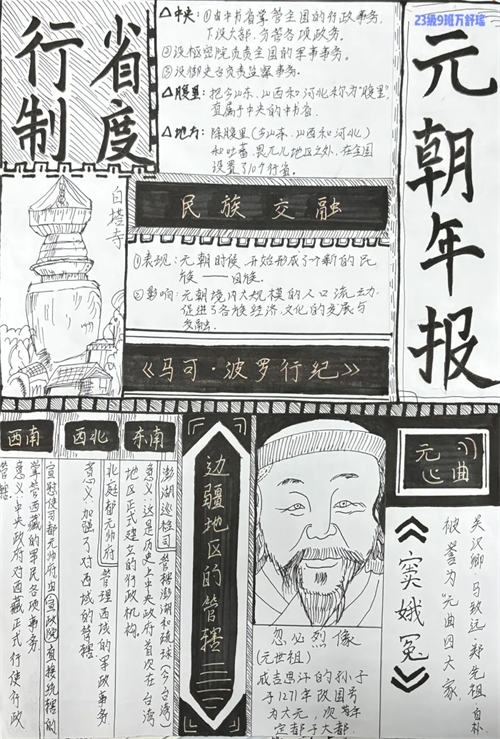 23级9班万舒瑶
元朝年报
行省
制度
△中央:①由中书省掌管全国的行政事务,
下设六部,负责各项政务。
②设枢密院负责全国的军事事务。
③设御史台负责监察事务。
△腹里:把今山东、山西和河北称为"腹里",
直属于中央的中书省
△地方:除腹里(今山东、山西和河北)
和吐蕃、畏兀儿地区之外,在全国
设置了10个行省。
白塔寺
民族交融
①表现:元朝时候,开始形成了个新的民
族——回族。
②影响:元朝境内大规模的人口流动
促进了各族经济、文化的发展与
交融。
《马可·波罗行纪》
西南
西北
东南
边疆地区的管辖
澎湖巡检司
管辖澎湖和琉球(今台湾)
意义:这是历史上中央政府首次在台湾
地区正式建立的行政机构。
北庭都元帅府
管理西域的军政事务
意义:加强了对西域的管辖
宣慰使司都元帅府由宣政院直接统辖的
掌管西藏的军民各项事务
意义:中央政府对西藏正式行使行政
管辖。
忽必烈像
(元世祖)
成吉思汗的孙子
于1271年改国号
为大元,次年
定都于大都
元曲
《窦娥冤》
关汉卿、马致远、郑光祖、白朴
被誉为"元曲四大家"